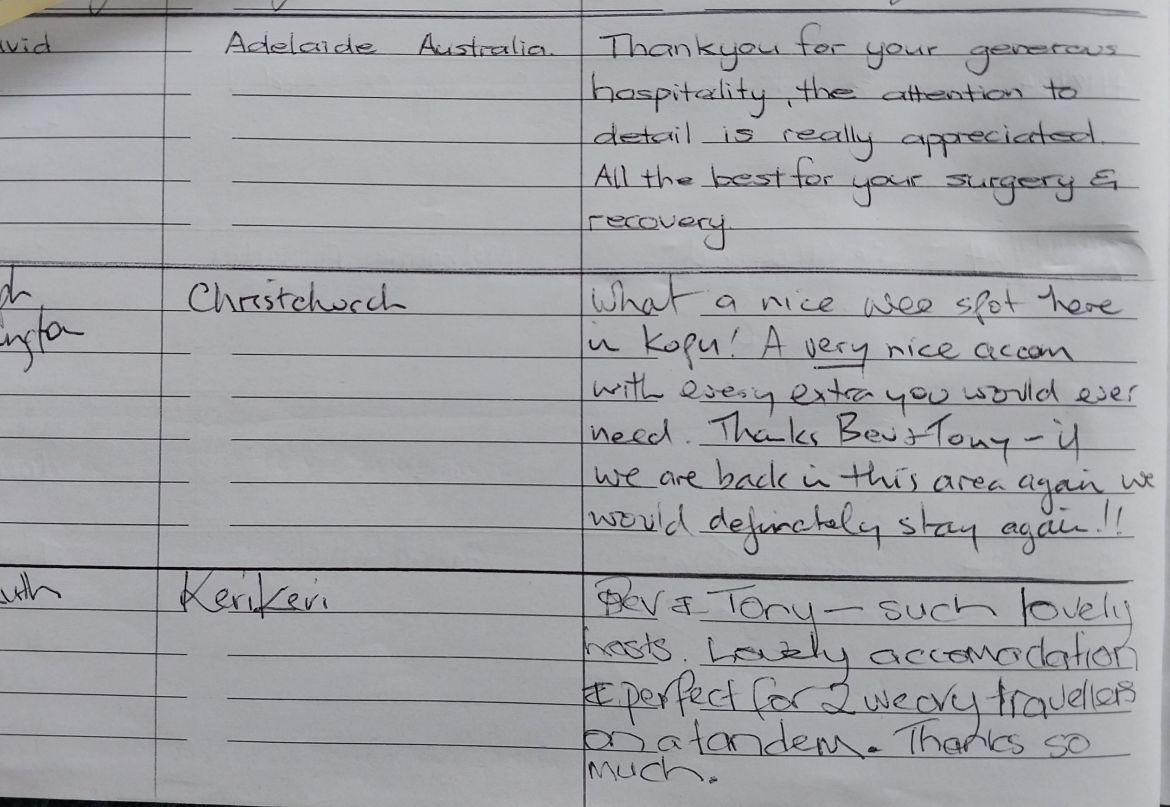 vid Adelaide Australia. Thankyou for your generous
hospitality, the attention to
detail is really appreciated.
All the best for your surgery &
recovery.
Christchurch What a nice wee spot here
ngton in Kopu! A very nice accom
with every extra you would ever
need. Thanks Bev + Tony - if
we are back in this area again we
would definately stay again!!
uth KeriKeri Bev & Tony - such lovely
hosts. Lovely accomodation
& perfect for 2 weary travellers
on a tandem. Thanks so
much.